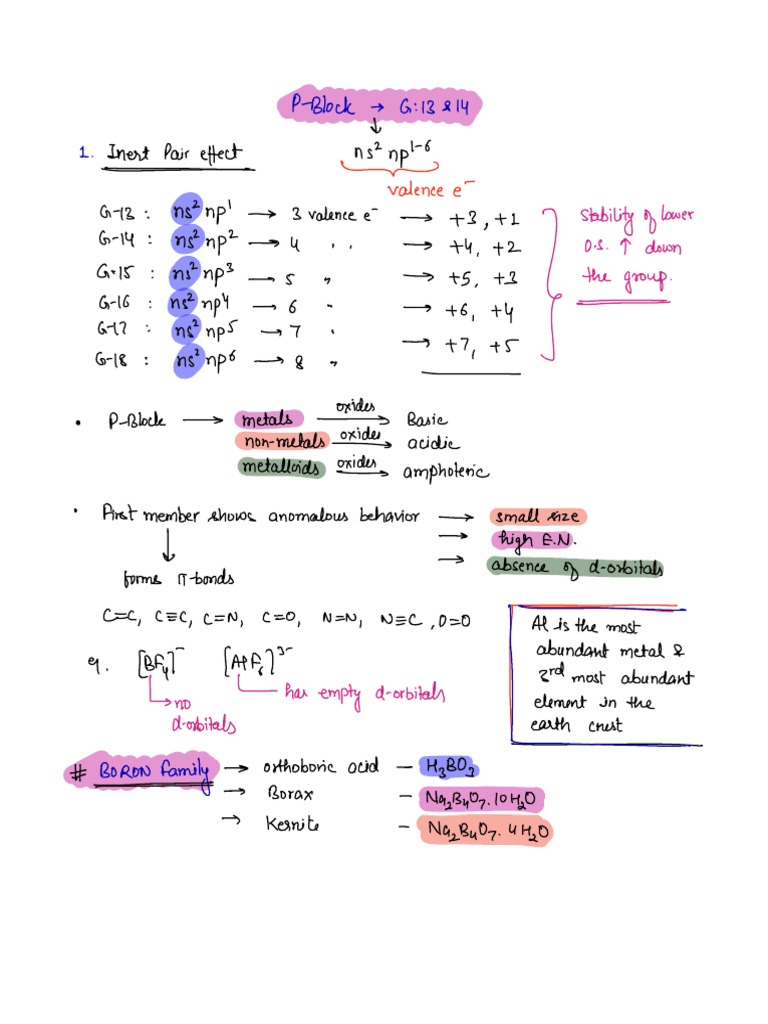 P-Block → G:13 & 14
↓
1. Inert Pair effect
ns² np¹⁻⁶
valence e⁻
G-13 : ns² np¹ → 3 valence e⁻ → +3, +1
G-14 : ns² np² → 4 ,, → +4, +2
G-15 : ns² np³ → 5 ,, → +5, +3
G-16 : ns² np⁴ → 6 ,, → +6, +4
G-17 : ns² np⁵ → 7 ,, → +7, +5
G-18 : ns² np⁶ → 8 ,,
Stability of lower
O.S. ↑ down
the group.
• P-Block → metals —oxides→ Basic
non-metals —oxides→ acidic
metalloids —oxides→ amphoteric
• First member shows anomalous behavior → small size
→ high E.N.
→ absence of d-orbitals
↓
forms π-bonds
C=C, C≡C, C=N, C=O, N=N, N≡C, O=O
eg. [BF₄]⁻ [AlF₆]³⁻
→ no
d-orbitals
has empty d-orbitals
Al is the most
abundant metal &
3rd most abundant
element in the
earth crust
# BORON family → orthoboric acid – H₃BO₃
→ Borax – Na₂B₄O₇.10H₂O
→ Kernite – Na₂B₄O₇.4H₂O